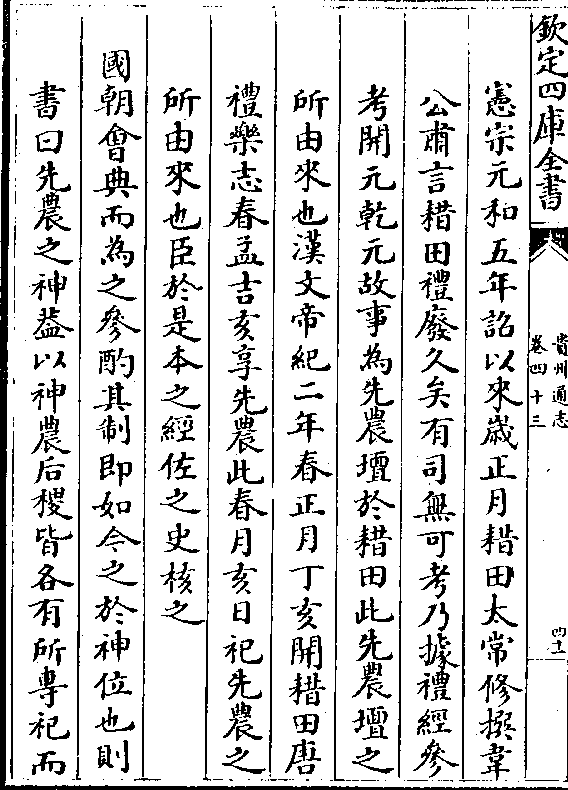 欽定四庫全書
貴州通志
卷四十三
憲宗元和五年詔以來歲正月耤田太常修撰韋
公肅言耤田禮廢久矣有司無可考乃據禮經參
考開元乾元故事為先農壇於耤田此先農壇之
所由來也漢文帝紀二年春正月丁亥開耤田唐
禮樂志春孟吉亥享先農此春月亥日祀先農之
所由來也臣於是本之經佐之史核之
國朝會典而為之參酌其制即如今之於神位也則
書曰先農之神葢以神農后稷皆各有所專祀而